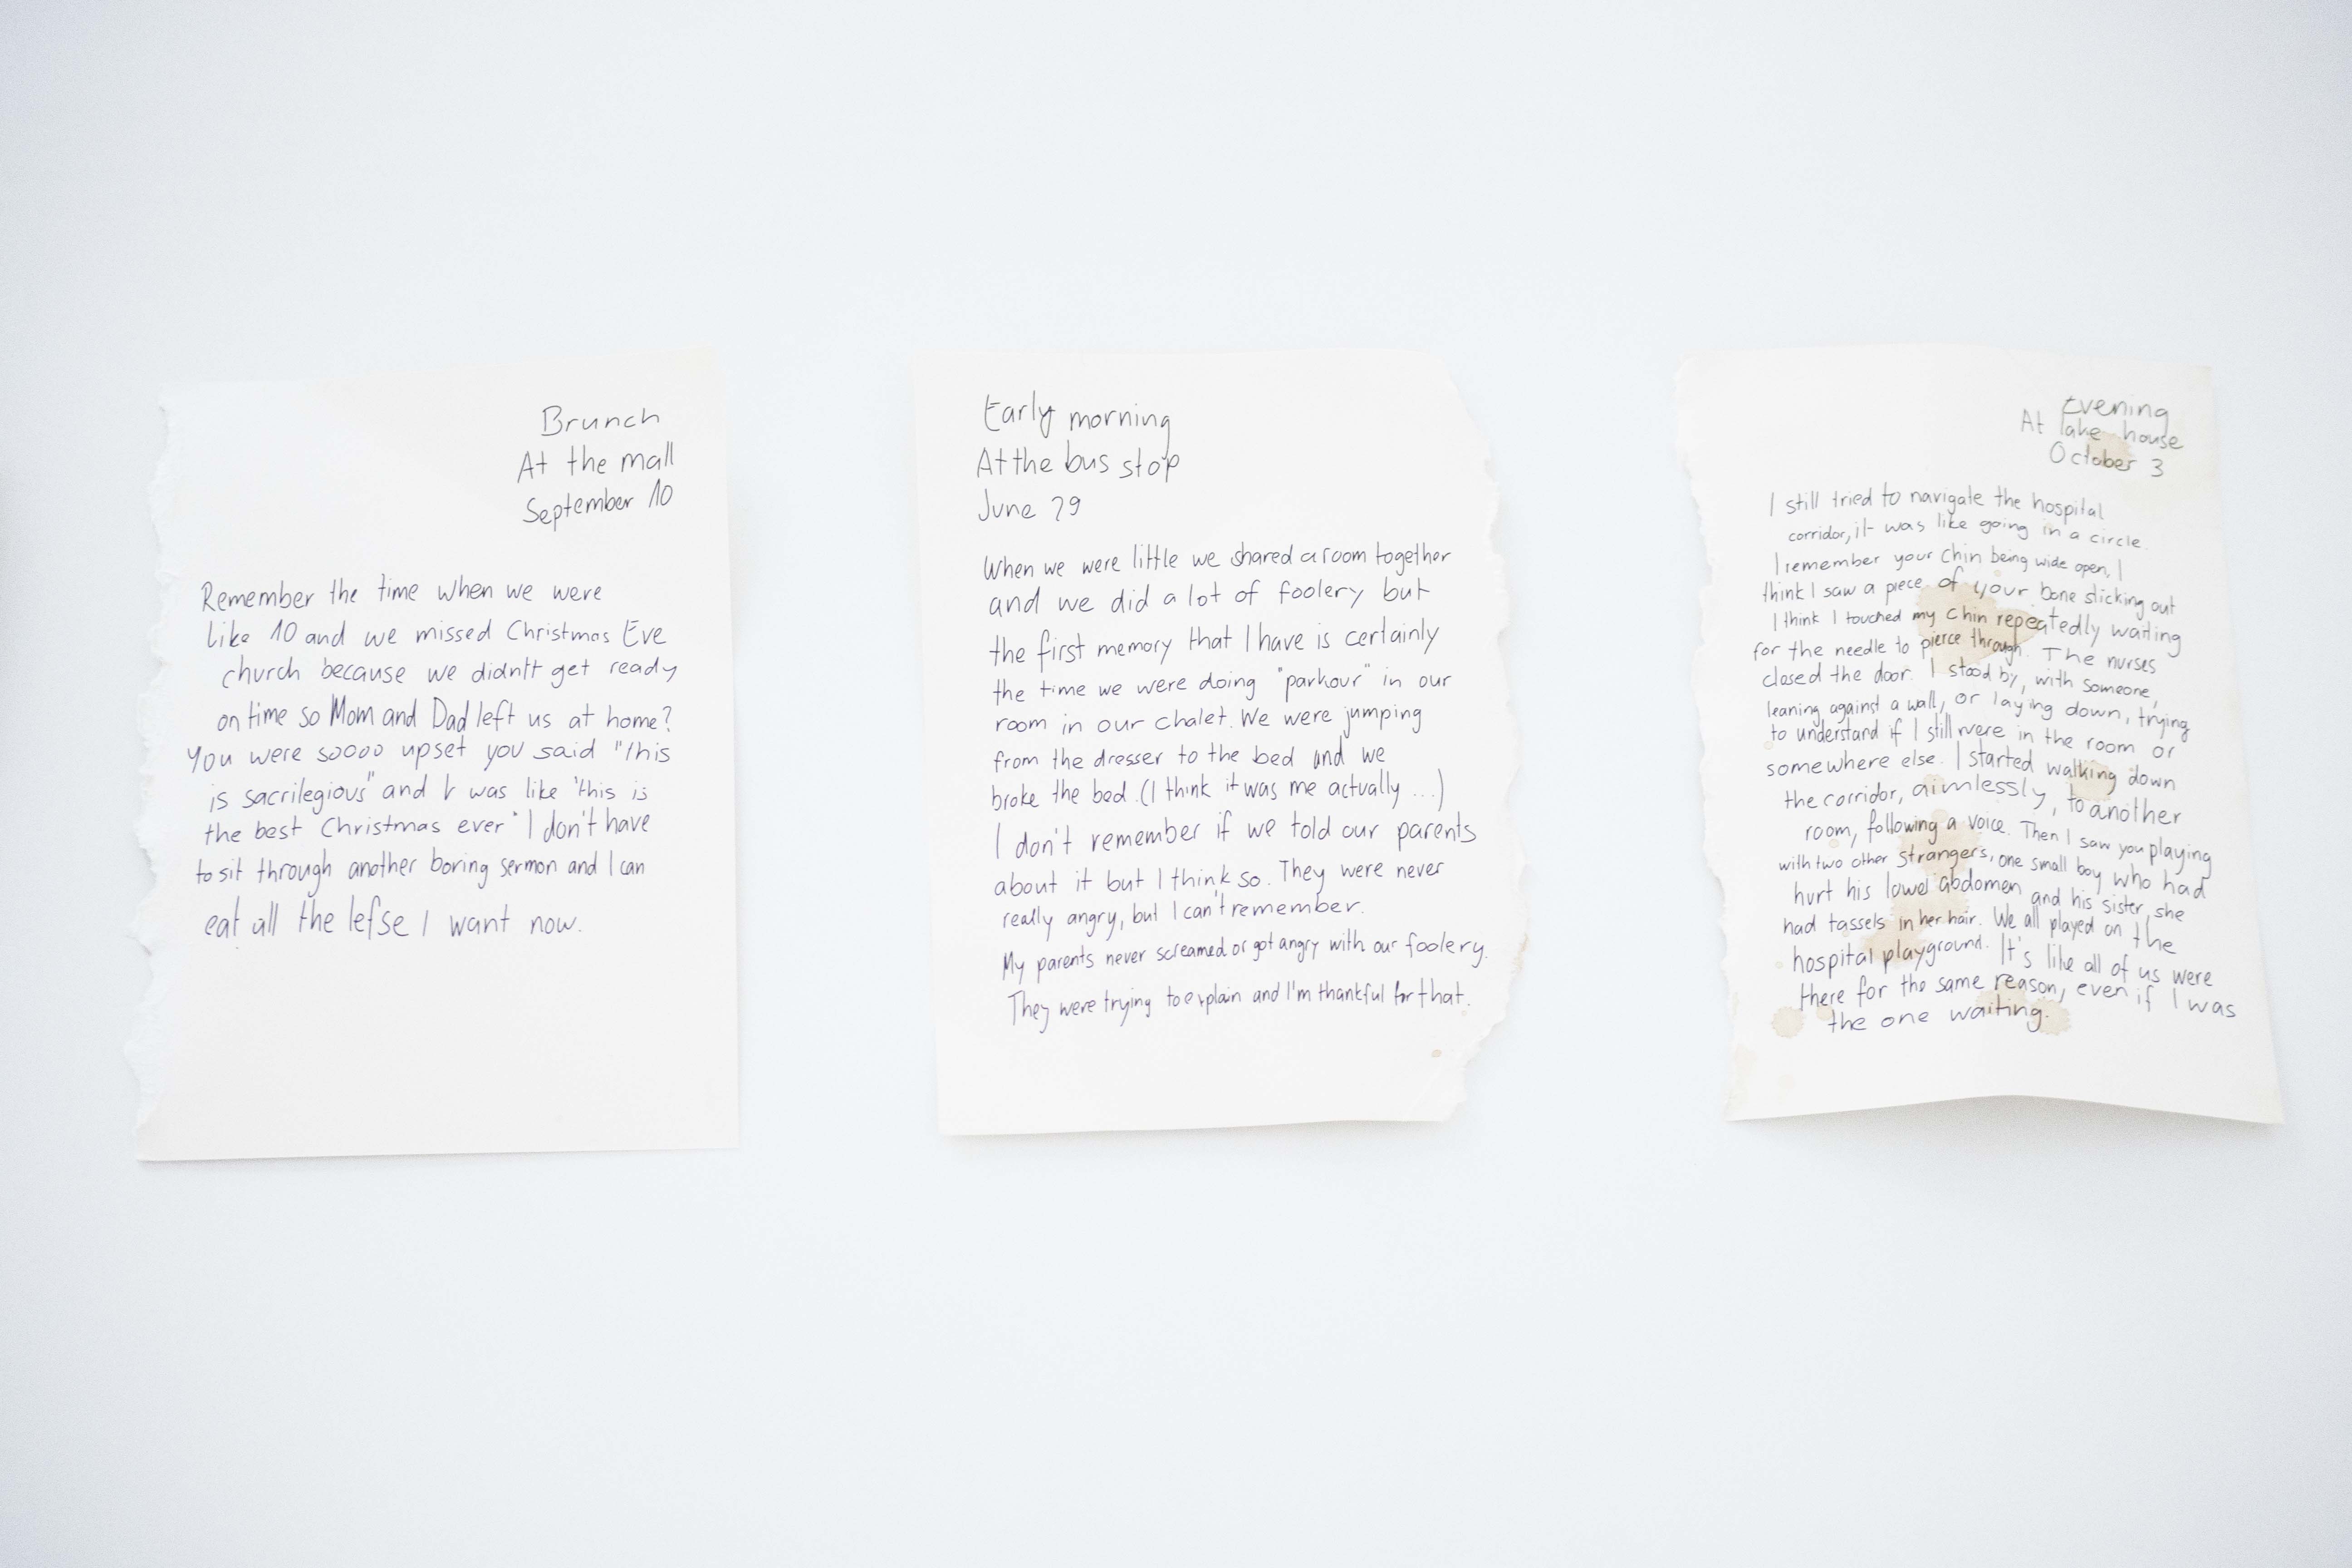 Brunch
At the mall
September 10
Remember the time when we were
like 10 and we missed Christmas Eve
church because we didn't get ready
on time so Mom and Dad left us at home?
You were soooo upset you said "this
is sacrilegious" and I was like "this is
the best Christmas ever" I don't have
to sit through another boring sermon and I can
eat all the lefse I want now.
Early morning
At the bus stop
June 29
When we were little we shared a room together
and we did a lot of foolery but
the first memory that I have is certainly
the time we were doing "parkour" in our
room in our chalet. We were jumping
from the dresser to the bed and we
broke the bed. (I think it was me actually ...)
I don't remember if we told our parents
about it but I think so. They were never
really angry, but I can't remember.
My parents never screamed or got angry with our foolery.
They were trying to explain and I'm thankful for that.
Evening
At lake house
October 3
I still tried to navigate the hospital
corridor, it was like going in a circle.
I remember your chin being wide open, I
think I saw a piece of your bone sticking out
I think I touched my chin repeatedly waiting
for the needle to pierce through. The nurses
closed the door. I stood by, with someone,
leaning against a wall, or laying down, trying
to understand if I still were in the room or
somewhere else. I started walking down
the corridor, aimlessly, to another
room, following a voice. Then I saw you playing
with two other strangers, one small boy who had
hurt his lowel abdomen and his sister, she
had tassels in her hair. We all played on the
hospital playground. It's like all of us were
there for the same reason, even if I was
the one waiting.